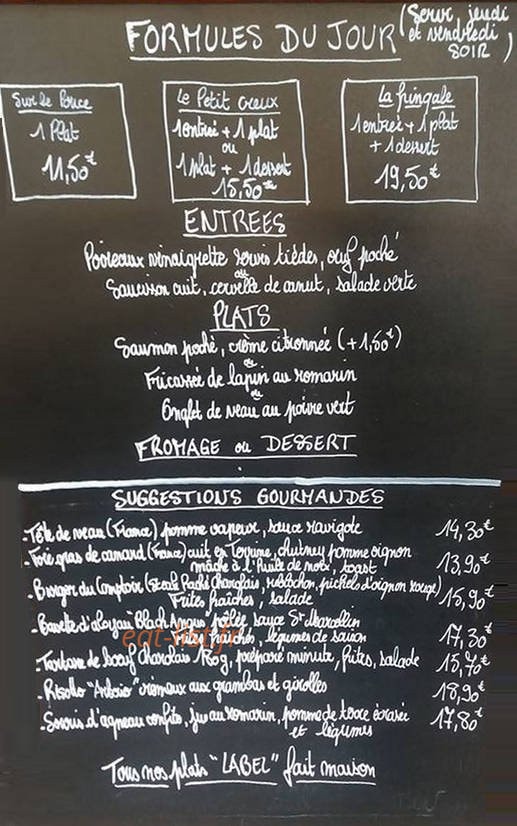 FORMULES DU JOUR (Servi jeudi
et vendredi
SOIR)
Sur le Pouce
1 Plat
11,50€
Le Petit creux
1 entrée + 1 plat
ou
1 plat + 1 dessert
15,50€
La fringale
1 entrée + 1 plat
+ 1 dessert
19,50€
ENTREES
Poireaux vinaigrette servis tièdes, œuf poché
ou
Saucisson cuit, cervelle de canut, salade verte
PLATS
Saumon poché, crème citronnée (+1,50€)
ou
Fricassée de lapin au romarin
ou
Onglet de veau au poivre vert
FROMAGE ou DESSERT
SUGGESTIONS GOURMANDES
- Tête de veau (France) pomme vapeur, sauce ravigote 14,30€
- Foie gras de canard (France) cuit en Terrine, chutney pomme oignon
mâche à l'huile de noix, toast 13,90€
- Burger du Comptoir (Steak Haché Charolais, reblochon, pickels d'oignon rouge)
Frites fraîches, salade 15,90€
- Bavette d'aloyau "Black Angus" poêlée sauce St Marcellin
frites fraîches, légumes de saison 17,30€
- Tartare de bœuf Charolais 180g, préparé minute, frites, salade 15,70€
- Risotto "Arborio" crémeux aux gambas et girolles 18,90€
- Souris d'agneau confite, jus au romarin, pomme de terre écrasée
et légumes 17,80€
Tous nos plats "LABEL" fait maison
eat-list.fr